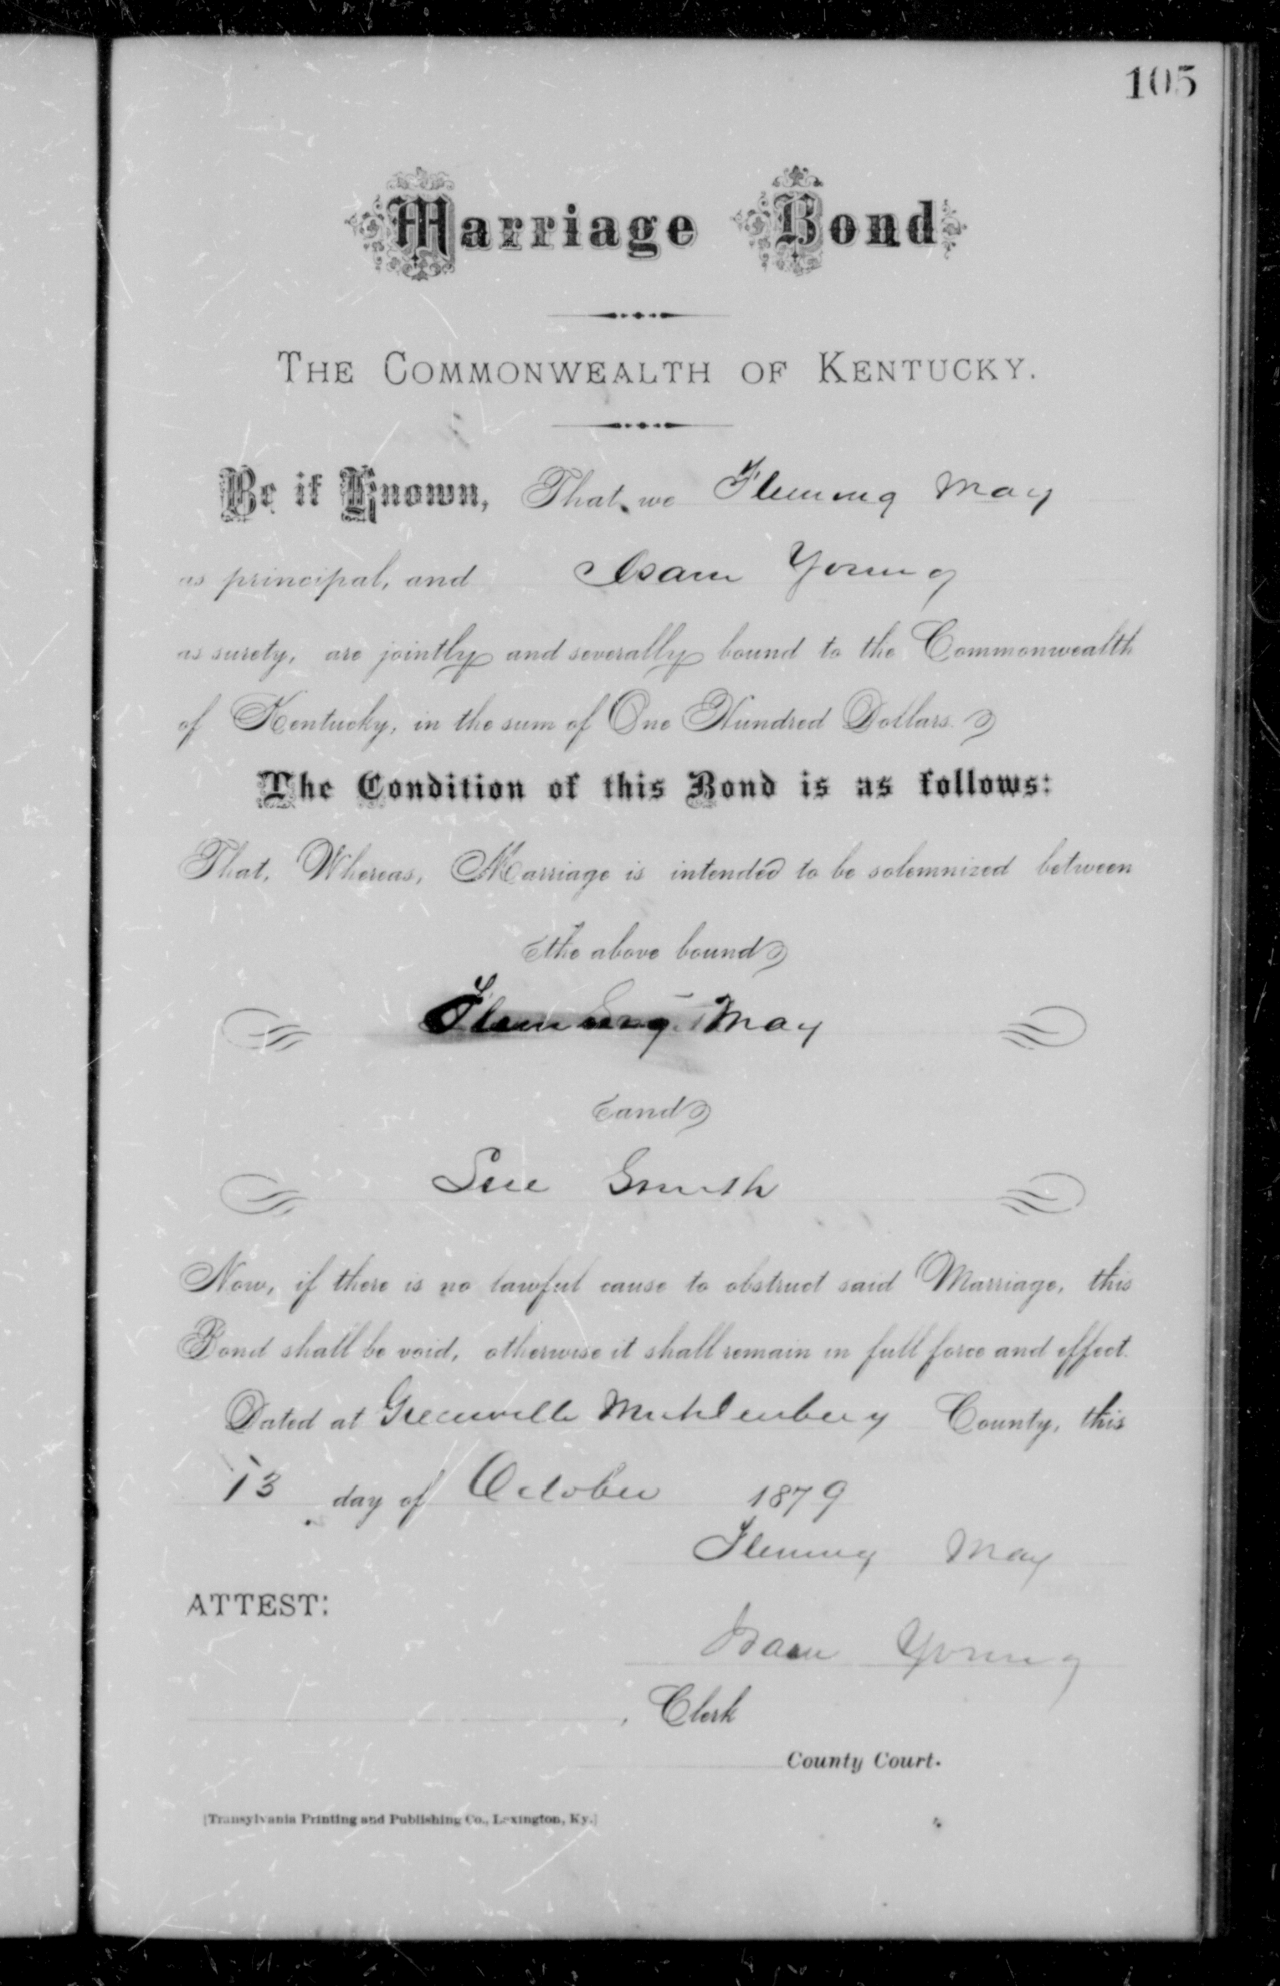 105
Marriage Bond
THE COMMONWEALTH OF KENTUCKY.
Be it Known, That we Fleming May
as principal, and Isam Young
as surety, are jointly and severally bound to the Commonwealth
of Kentucky, in the sum of One Hundred Dollars.
The Condition of this Bond is as follows:
That, Whereas, Marriage is intended to be solemnized between
the above bound
Fleming May
and
Sue Smith
Now, if there is no lawful cause to obstruct said Marriage, this
Bond shall be void, otherwise it shall remain in full force and effect.
Dated at Greenville Muhlenberg County, this
13 day of October 1879
Fleming May
ATTEST:
Isam Young
, Clerk
County Court.
[Transylvania Printing and Publishing Co., Lexington, Ky.]